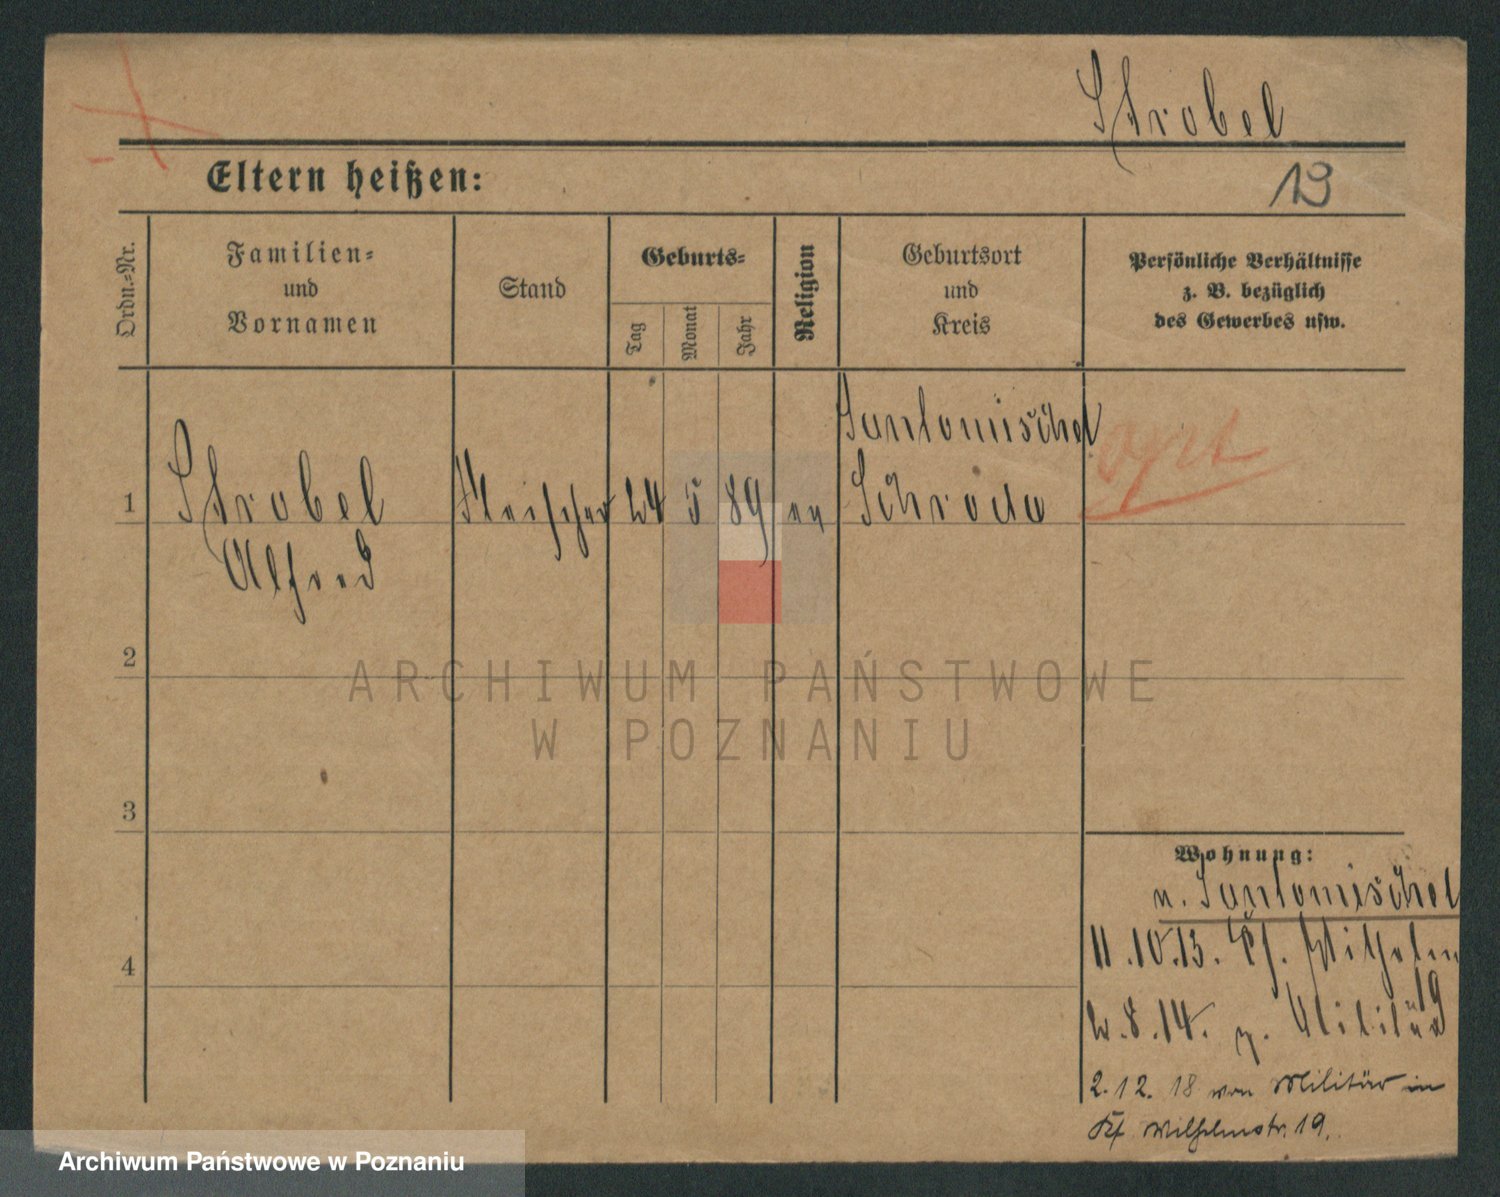 Strobel
Eltern heißen:
19
Ordn.=Nr.
Familien=
und
Vornamen
Stand
Geburts=
Tag
Monat
Jahr
Religion
Geburtsort
und
Kreis
Persönliche Verhältnisse
z. B. bezüglich
des Gewerbes usw.
1
Strobel
Alfred
Fleischer
24
5
89
ev
Santomischel
Schroda
2
3
4
Wohnung:
v. Santomischel
11.10.13. Wilhelm
19
2.8.14. z. Militär
2.12.18 von Militär in
Wilhelmstr. 19.
ARCHIWUM PAŃSTWOWE
W POZNANIU
Archiwum Państwowe w Poznaniu